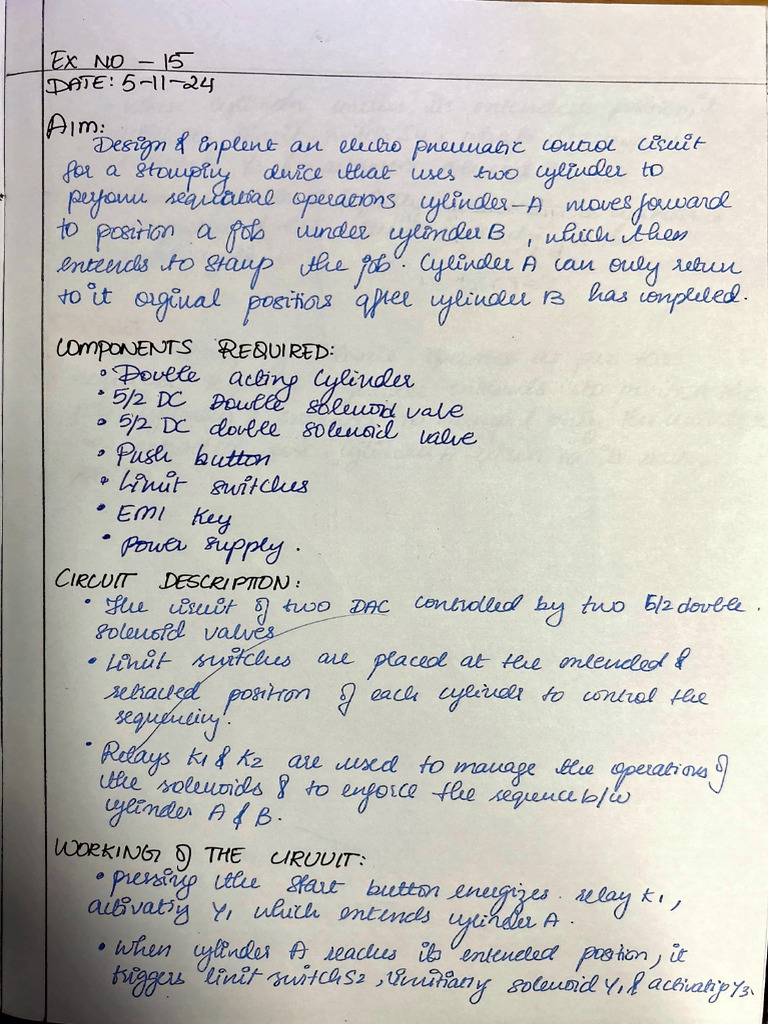 EX NO - 15
DATE: 5-11-24
AIM:
Design & inplent an electro pneumatic control circuit
for a stamping device that uses two cylinder to
perform sequential operations cylinder-A moves forward
to position a job under cylinder B, which then
entends to stamp the job. Cylinder A can only return
to it orginal positions after cylinder B has completed.
COMPONENTS REQUIRED:
• Double acting Cylinder
• 5/2 DC Double solenoid valve
• 5/2 DC double solenoid valve
• Push button
• Limit switches
• EMI Key
• Power supply.
CIRCUIT DESCRIPTION:
• The circuit of two DAC controlled by two 5/2 double.
solenoid valves
• Limit switches are placed at the entended &
retracted position of each cylinder to control the
sequencing.
• Relays K1 & K2 are used to manage the operations of
the solenoids & to enforce the sequence b/w
cylinder A & B.
WORKING OF THE CIRUUIT:
• pressing the start button energizes. relay K1,
activating Y1 which entends cylinder A.
• When cylinder A reaches its entended position, it
triggers limit switch S2, solenoid Y1 & activatig Y3.